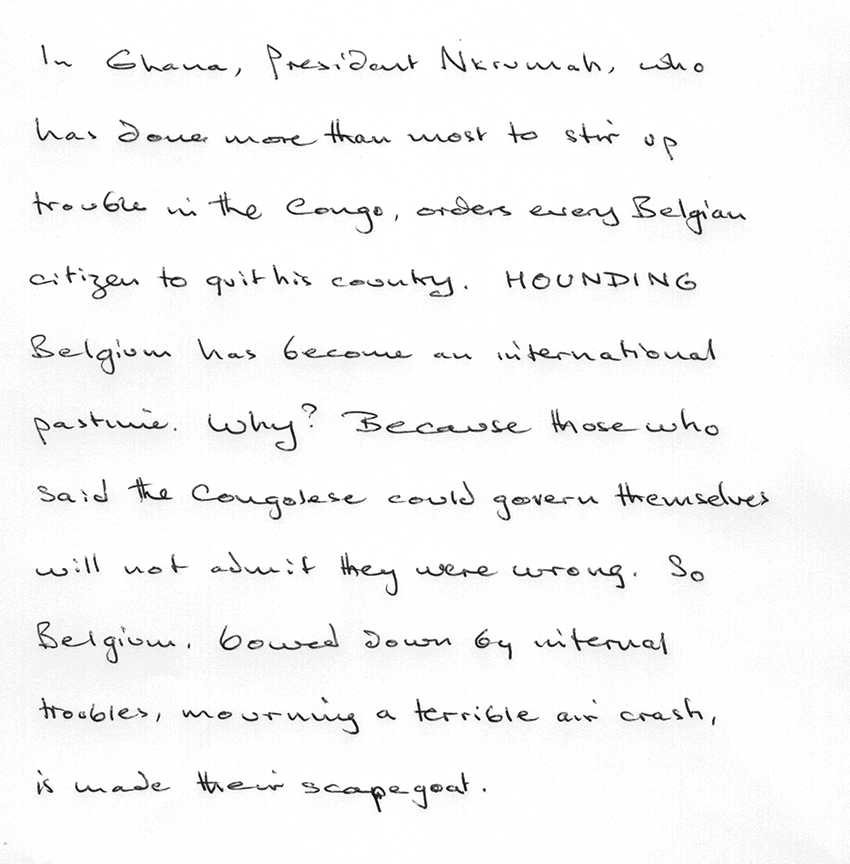 In Ghana, President Nkrumah, who
has done more than most to stir up
trouble in the Congo, orders every Belgian
citizen to quit his country. HOUNDING
Belgium has become an international
pastime. Why? Because those who
said the Congolese could govern themselves
will not admit they were wrong. So
Belgium, bowed down by internal
troubles, mourning a terrible air crash,
is made their scapegoat.